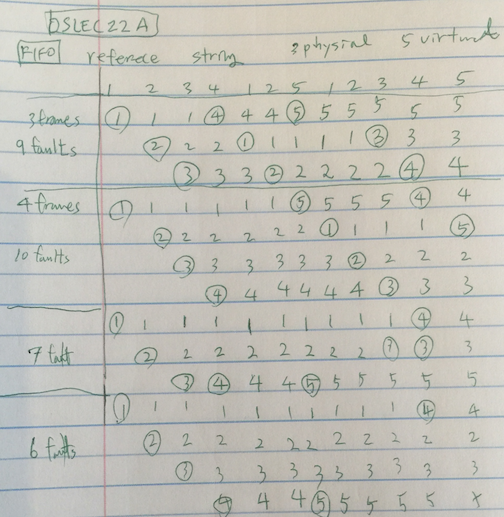 OSLEC22A
FIFO reference string 3 physial 5 virtual
1 2 3 4 1 2 5 1 2 3 4 5
3 frames 1 1 1 4 4 4 5 5 5 5 5 5
9 faults 2 2 2 1 1 1 1 1 3 3 3
3 3 3 2 2 2 2 2 4 4
4 frames 1 1 1 1 1 1 5 5 5 5 4 4
2 2 2 2 2 2 1 1 1 1 5
10 faults 3 3 3 3 3 3 2 2 2 2
4 4 4 4 4 4 3 3 3
1 1 1 1 1 1 1 1 1 1 4 4
7 falt 2 2 2 2 2 2 2 2 3 3
3 4 4 4 5 5 5 5 5 5
1 1 1 1 1 1 1 1 1 4 4
6 faults 2 2 2 2 2 2 2 2 2 2 2
3 3 3 3 3 3 3 3 3 3
4 4 4 5 5 5 5 5